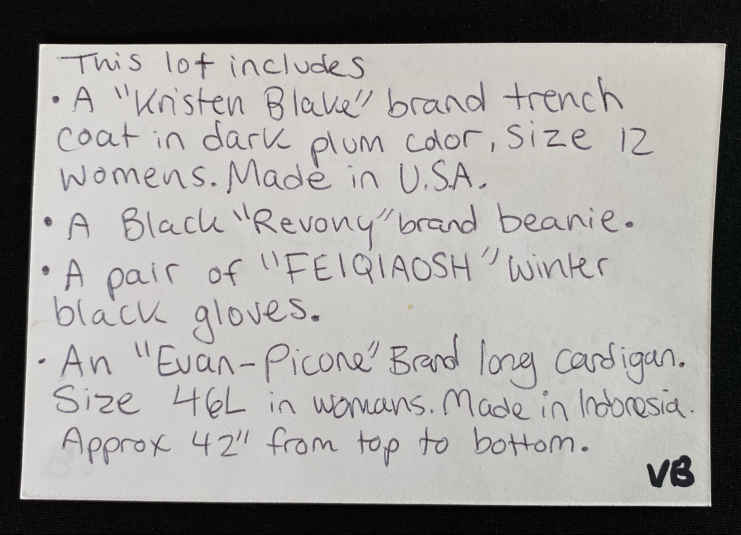 This lot includes
• A "Kristen Blake" brand trench
coat in dark plum color, size 12
womens. Made in U.S.A.
• A Black "Revony" brand beanie.
• A pair of "FEIQIAOSH" winter
black gloves.
• An "Evan-Picone" Brand long cardigan.
Size 46L in womans. Made in Indonesia.
Approx 42" from top to bottom.
VB